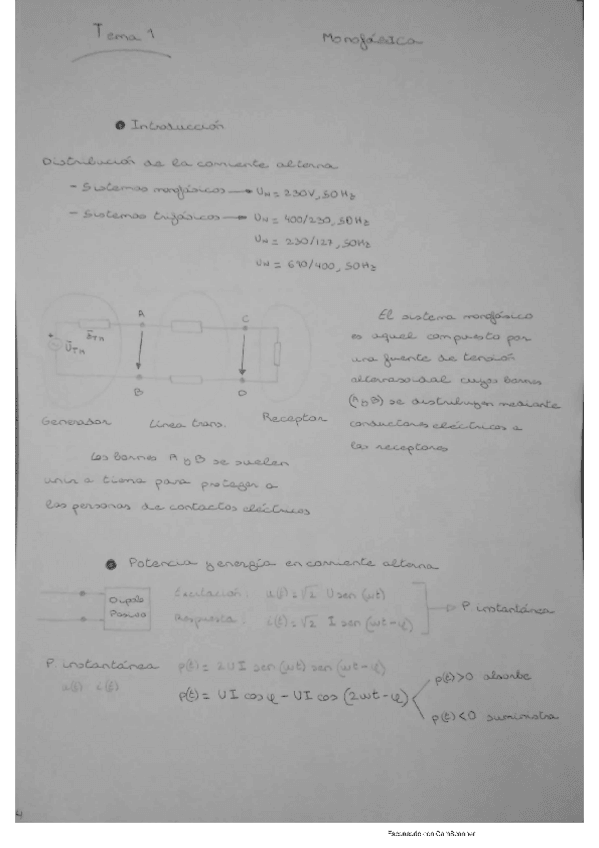 Tema 1
Monofásica
Introducción
Distribución de la corriente alterna
- Sistemas monofásicos → UN = 230V, 50Hz
- Sistemas trifásicos → UN = 400/230, 50Hz
UN = 230/127, 50Hz
UN = 690/400, 50Hz
A
C
+
ZTH
UTH
B
D
Generador
Línea trans.
Receptor
El sistema monofásico
es aquel compuesto por
una fuente de tensión
alternasoidal cuyos bornes
(A y B) se distribuyen mediante
conductores eléctricos a
los receptores
Los bornes A y B se suelen
unir a tierra para proteger a
las personas de contactos eléctricos
Potencia y energía en corriente alterna
Dipolo
Pasivo
Excitación: u(t) = √2 U sen (ωt)
Respuesta: i(t) = √2 I sen (ωt-φ)
P instantánea
P instantánea p(t) = 2UI sen(ωt) sen(ωt-φ)
u(t) i(t)
p(t) = UI cosφ - UI cos (2ωt-φ)
p(t)>0 absorbe
p(t)<0 suministra
4
Escaneado con CamScanner